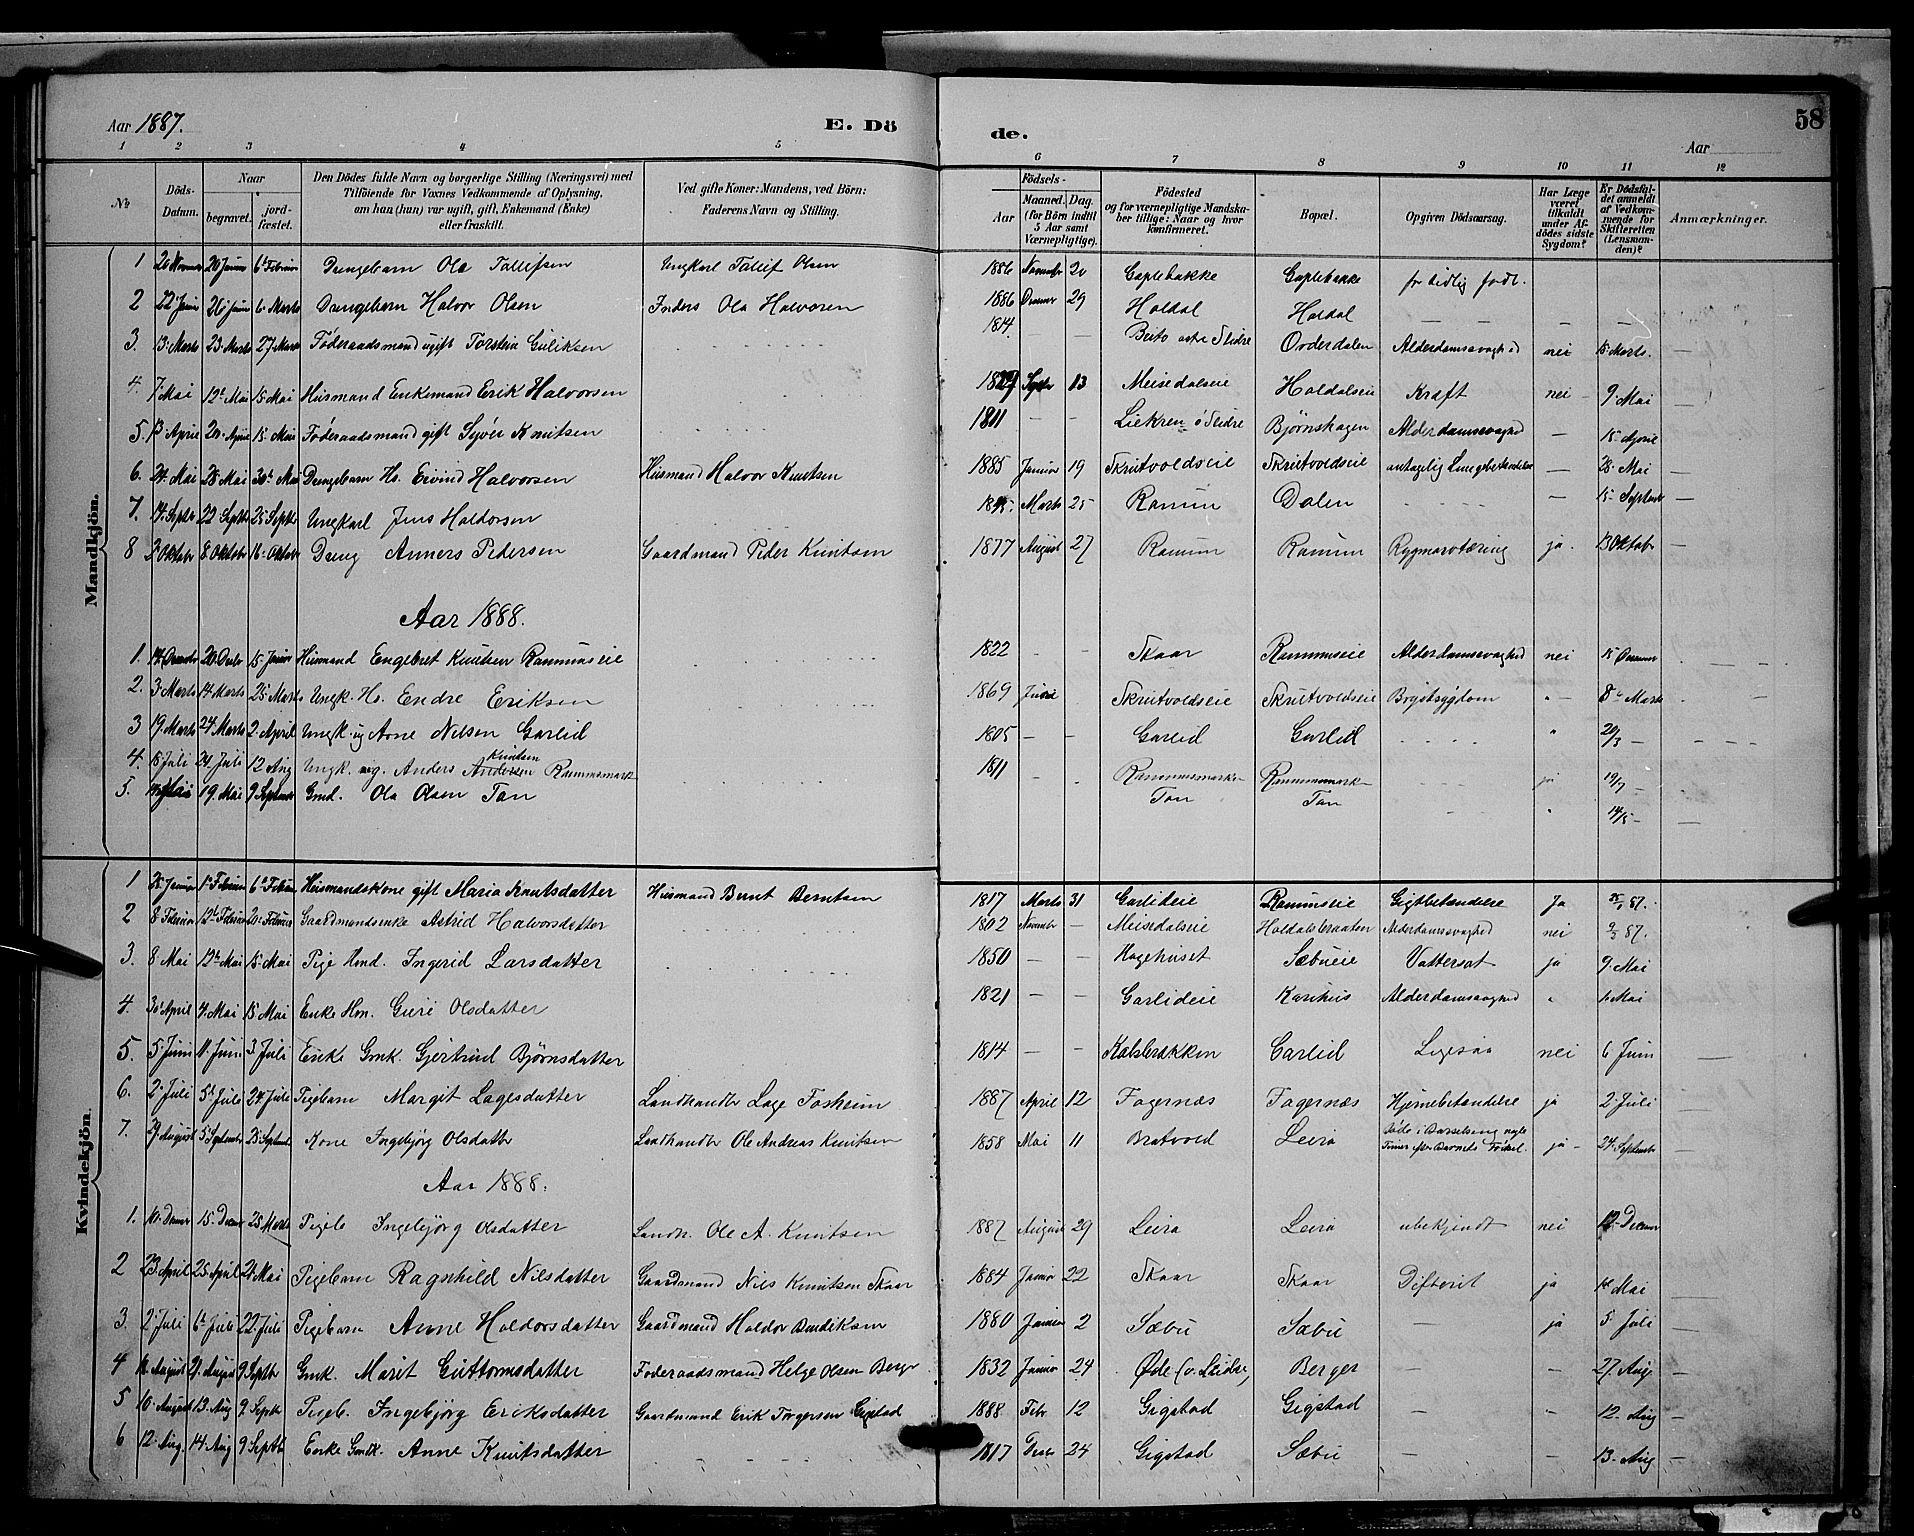 Aar 1887. E. Dö de. Aar 58
1 2 3 4 5 6 7 8 9 10 11 12
No Döds-Datum. Naar begravet. jordfæstet. Den Dödes fulde Navn og borgerlige Stilling (Næringsvei) med Tilföiende for Voxnes Vedkommende af Oplysning, om han (hun) var ugift, gift, Enkemand (Enke) eller fraskilt. Ved gifte Koner: Mandens, ved Börn: Faderens Navn og Stilling. Födsels- Aar Maaned. Dag. (for Börn indtil 5 Aar samt Værnepligtige). Födested og for værnepligtige Mandskaber tillige: Naar og hvor konfirmeret. Bopæl. Opgiven Dödsaarsag. Har Læge været tilkaldt under Afdödes sidste Sygdom? Er Dödsfaldet anmeldt af Vedkommende for Skifteretten (Lensmanden)? Anmærkninger.
Mandkjön.
1 20 26 Januar 6 Februar Drengebarn Ola Tollefsen Ungkarl Tollef Olsen 1886 November 20 Gaplebakke Gaplebakke for tidlig født.
2 22 Januar 26 Januar 6 Marts Drengebarn Halvor Olsen Inders Ola Halvorsen 1886 29 Holdal Holdal — — — —
3. 13 Marts 23 Marts 27 Marts Føderaadsmand ugift Torstein Guliksen 1814 — — Beito østre Slidre Alderdomssvaghed nei 15 Marts. —
4. 7 Mai 12 Mai 15 Mai Husmand Enkemand Erik Halvorsen Septbr 13 Meisedalseie Holdalseie Kraft nei 9 Mai —
5. 13 April 20 April 15 Mai Føderaadsmand gift Syver Knutsen 1811 — — Liekren ø Slidre Bjørnshagen Alderdomssvaghed — 15 April —
6. 24 Mai 28 Mai 30 Mai Drengebarn Hs. Eivind Halvorsen Husmand Halvor Knutsen 1885 Januar 19 Skrutvoldseie Skrutvoldseie antagelig Lungebetændelse — 28 Mai —
7. 14 Septbr 22 Septbr 25 Septbr Ungkarl Jens Haldorsen Marts 25 Ranum Dalen — 15 Septembr —
8 2 Oktobr 8 Oktobr 16 Oktobr Dreng Anners Pedersen Gaardmand Peder Knutsen 1877 August 27 Ranum Ranum Rygmarvtæring ja. 13 Oktobr —
Aar 1888.
1. 14 20 15 Januar Husmand Engebret Knutsen Ranumseie 1822 — — Skaar Ranumseie Alderdomssvaghed nei 15 —
2. 3 Marts 14 Marts 25 Marts Ungk. Hs. Endre Eriksen 1869 Juni Skrutvoldseie Skrutvoldseie Brystsygdom " — 8 Marts —
3 19 Marts 24 Marts 2 April Ungk. ug Arne Nilsen Garlid 1805 — — Garlid Garlid " 20/3 —
4. 18 Juli 24 Juli 12 Aug Ungk. ug. Anders Andersen Knutsen Ranumsmark 1811 — — Ranumsmark Ranumsmark ja 19/7 —
5. Mai 19 Mai 9 September Gmd. Ola Olsen Ton Ton Ton " 14/5 — —
Kvindekjön.
1 25 Januar 1 Februar 6 Februar Husmandskone gift Maria Knutsdatter Husmand Bernt Berntsen 1817 Marts 31 Garlideie Ranumseie Gigtbetændelse Ja 25/1 87. —
2 8 Februar 12 Februar 20 Februar Gaardmandsenke Astrid Halvorsdatter 1802 November — Meisedalseie Holdalsbraaten Alderdomssvaghed nei 9/2 87. —
3. 8 Mai 12 Mai 15 Mai Pige Hmd. Ingerid Larsdatter 1850 — — Hagehuset Sæbueie Vattersot ja 9 Mai —
4. 30 April 7 Mai 15 Mai Enke Hm. Guri Olsdatter 1821 — — Garlideie Karihus Alderdomssvaghed " 1 Mai —
5. 5 Juni 11 Juni 3 Juli Enke Gmk. Gjertrud Bjørnsdatter 1814 — — Kalsbrækken Garlid nei 6 Juni —
6. 2 Juli 5 Juli 24 Juli Pigebarn Margit Lagesdatter Landhandler Lage Fosheim 1887 April 12 Fagernæs Fagernæs Hjernebetændelse ja 2 Juli —
7. 29 August 5 September 25 September Kone Ingebjørg Olsdatter Landhandler Ole Andreas Knutsen 1858 Mai 11 Bratvold Leira Døde i Barselseng nogle Timer efter Barnets Fødsel. ja — 24 September —
Aar 1888.
1. 10 15 25 Marts Pigeb. Ingebjørg Olsdatter Landh. Ole A. Knutsen 1887 August 29 Leira Leira ubekjendt nei 12 —
2 23 April 25 April 21 Mai Pigebarn Ragnhild Nilsdatter Gaardmand Nils Knutsen Skaar 1884 Januar 22 Skaar Skaar Difterit ja Mai —
3. 2 Juli 6 Juli 22 Juli Pigebarn Anne Haldorsdatter Gaardmand Haldor Bendiksen 1880 Januar 2 Sæbu Sæbu ja 5 Juli —
4 August 21 August 9 Septbr Gmk. Marit Guttormsdatter Føderaadsmand Helge Olsen Berge 1832 Januar 24 Øde (v. Slidre) Berger — — 27 Aug —
5 10 August 13 Aug 9 Septbr Pigeb. Ingebjørg Eriksdatter Gaardmand Erik Torgersen Gigstad 1888 Febr 12 Gigstad Gigstad — — 12 Aug —
6 12 Aug. 14 Aug 9 Septbr Enke Gmk. Anne Knutsdatter 1817 24 Gigstad Sæbu — — 13 Aug —